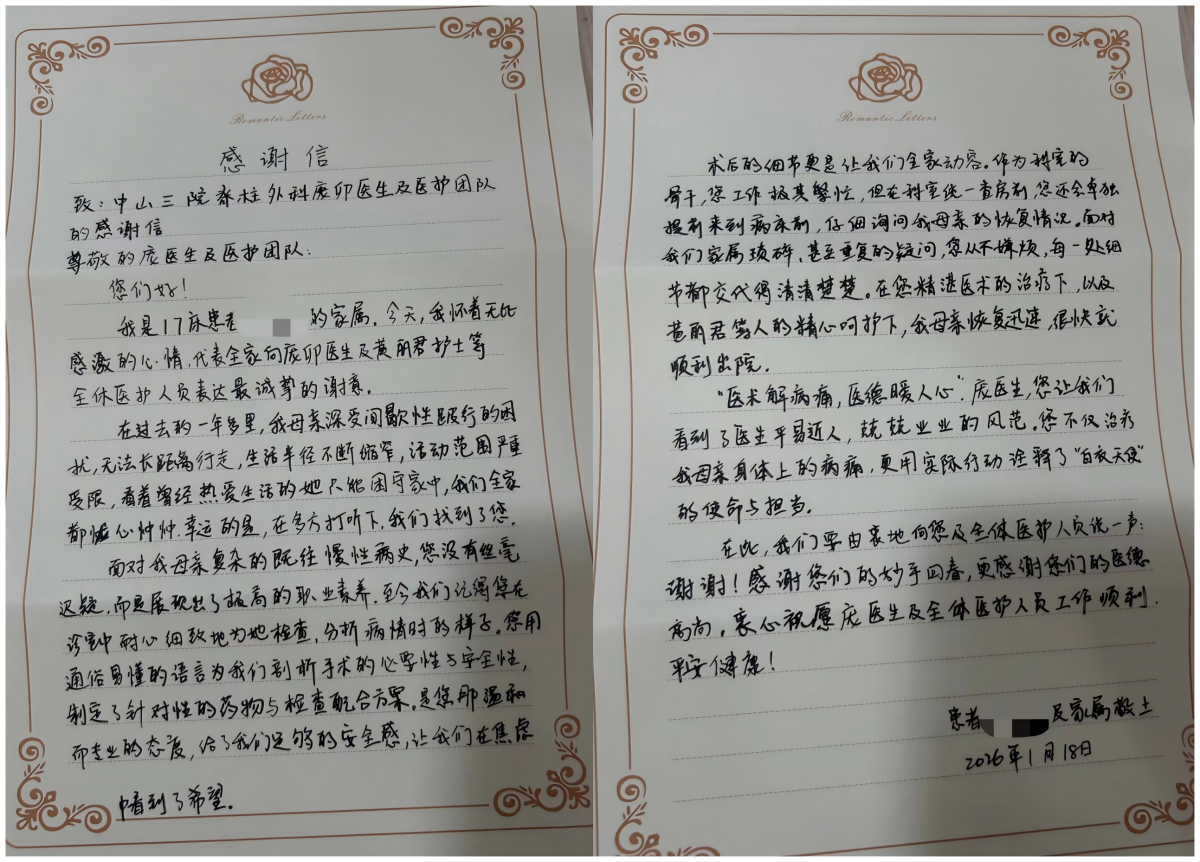 Romantic Letters
感谢信
致：中山三院脊柱外科庞卯医生及医护团队
的感谢信
尊敬的庞医生及医护团队：
您们好！
我是17床患者 的家属。今天，我怀着无比
感激的心情，代表全家向庞卯医生及黄丽君护士等
全体医护人员表达最诚挚的谢意。
在过去的一年多里，我母亲深受间歇性跛行的困
扰，无法长距离行走，生活半径不断缩窄，活动范围严重
受限，看着曾经热爱生活的她只能困守家中，我们全家
都忧心忡忡。幸运的是，在多方打听下，我们找到了您。
面对我母亲复杂的既往慢性病史，您没有丝毫
迟疑，而是展现出了极高的职业素养，至今我们记得您在
诊室中耐心细致地为她检查，分析病情时的样子。您用
通俗易懂的语言为我们剖析手术的必要性与安全性，
制定了针对性的药物与检查配合方案。是您那温和
而专业的态度，给了我们足够的安全感，让我们在焦虑
中看到了希望。
Romantic Letters
术后的细节更是让我们全家动容。作为科室的
骨干，您工作极其繁忙，但在科室统一查房前，您还会单独
提前来到病床前，仔细询问我母亲的恢复情况。面对
我们家属琐碎、甚至重复的疑问，您从不嫌烦，每一处细
节都交代得清清楚楚。在您精湛医术的治疗下，以及
黄丽君等人的精心呵护下，我母亲恢复迅速，很快就
顺利出院。
“医术解病痛，医德暖人心”。庞医生，您让我们
看到了医生平易近人，兢兢业业的风范。您不仅治疗
我母亲身体上的病痛，更用实际行动诠释了“白衣天使”
的使命与担当。
在此，我们要由衷地向您及全体医护人员说一声：
谢谢！感谢您们的妙手回春，更感谢您们的医德
高尚。衷心祝愿庞医生及全体医护人员工作顺利，
平安健康！
患者 及家属敬上
2026年1月18日